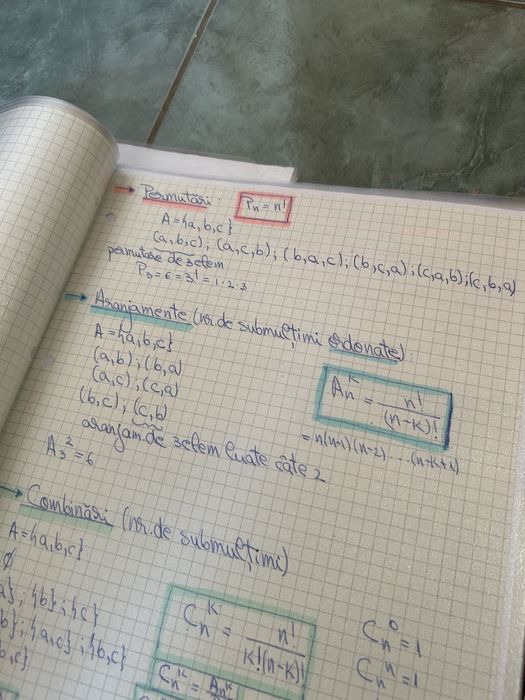 → Permutări: Pn = n!
A={a,b,c}
(a,b,c); (a,c,b); (b,a,c); (b,c,a); (c,a,b); (c,b,a)
permutare de 3 elem
P3=6=3!=1·2·3
→ Aranjamente (nr. de submulțimi ordonate)
A={a,b,c}
(a,b); (b,a)
(a,c); (c,a)
(b,c); (c,b)
A_n^k = n!/(n-k)!
= n(n-1)(n-2) ... (n-k+1)
aranjam. de 3 elem luate câte 2
A_3^2 = 6
→ Combinări (nr. de submulțimi)
A={a,b,c}
∅
a}; {b}; {c}
b}; {a,c}; {b,c}
b,c}
C_n^k = n!/k!(n-k)!
C_n^0 = 1
C_n^n = 1
C_n^k = A_n^k